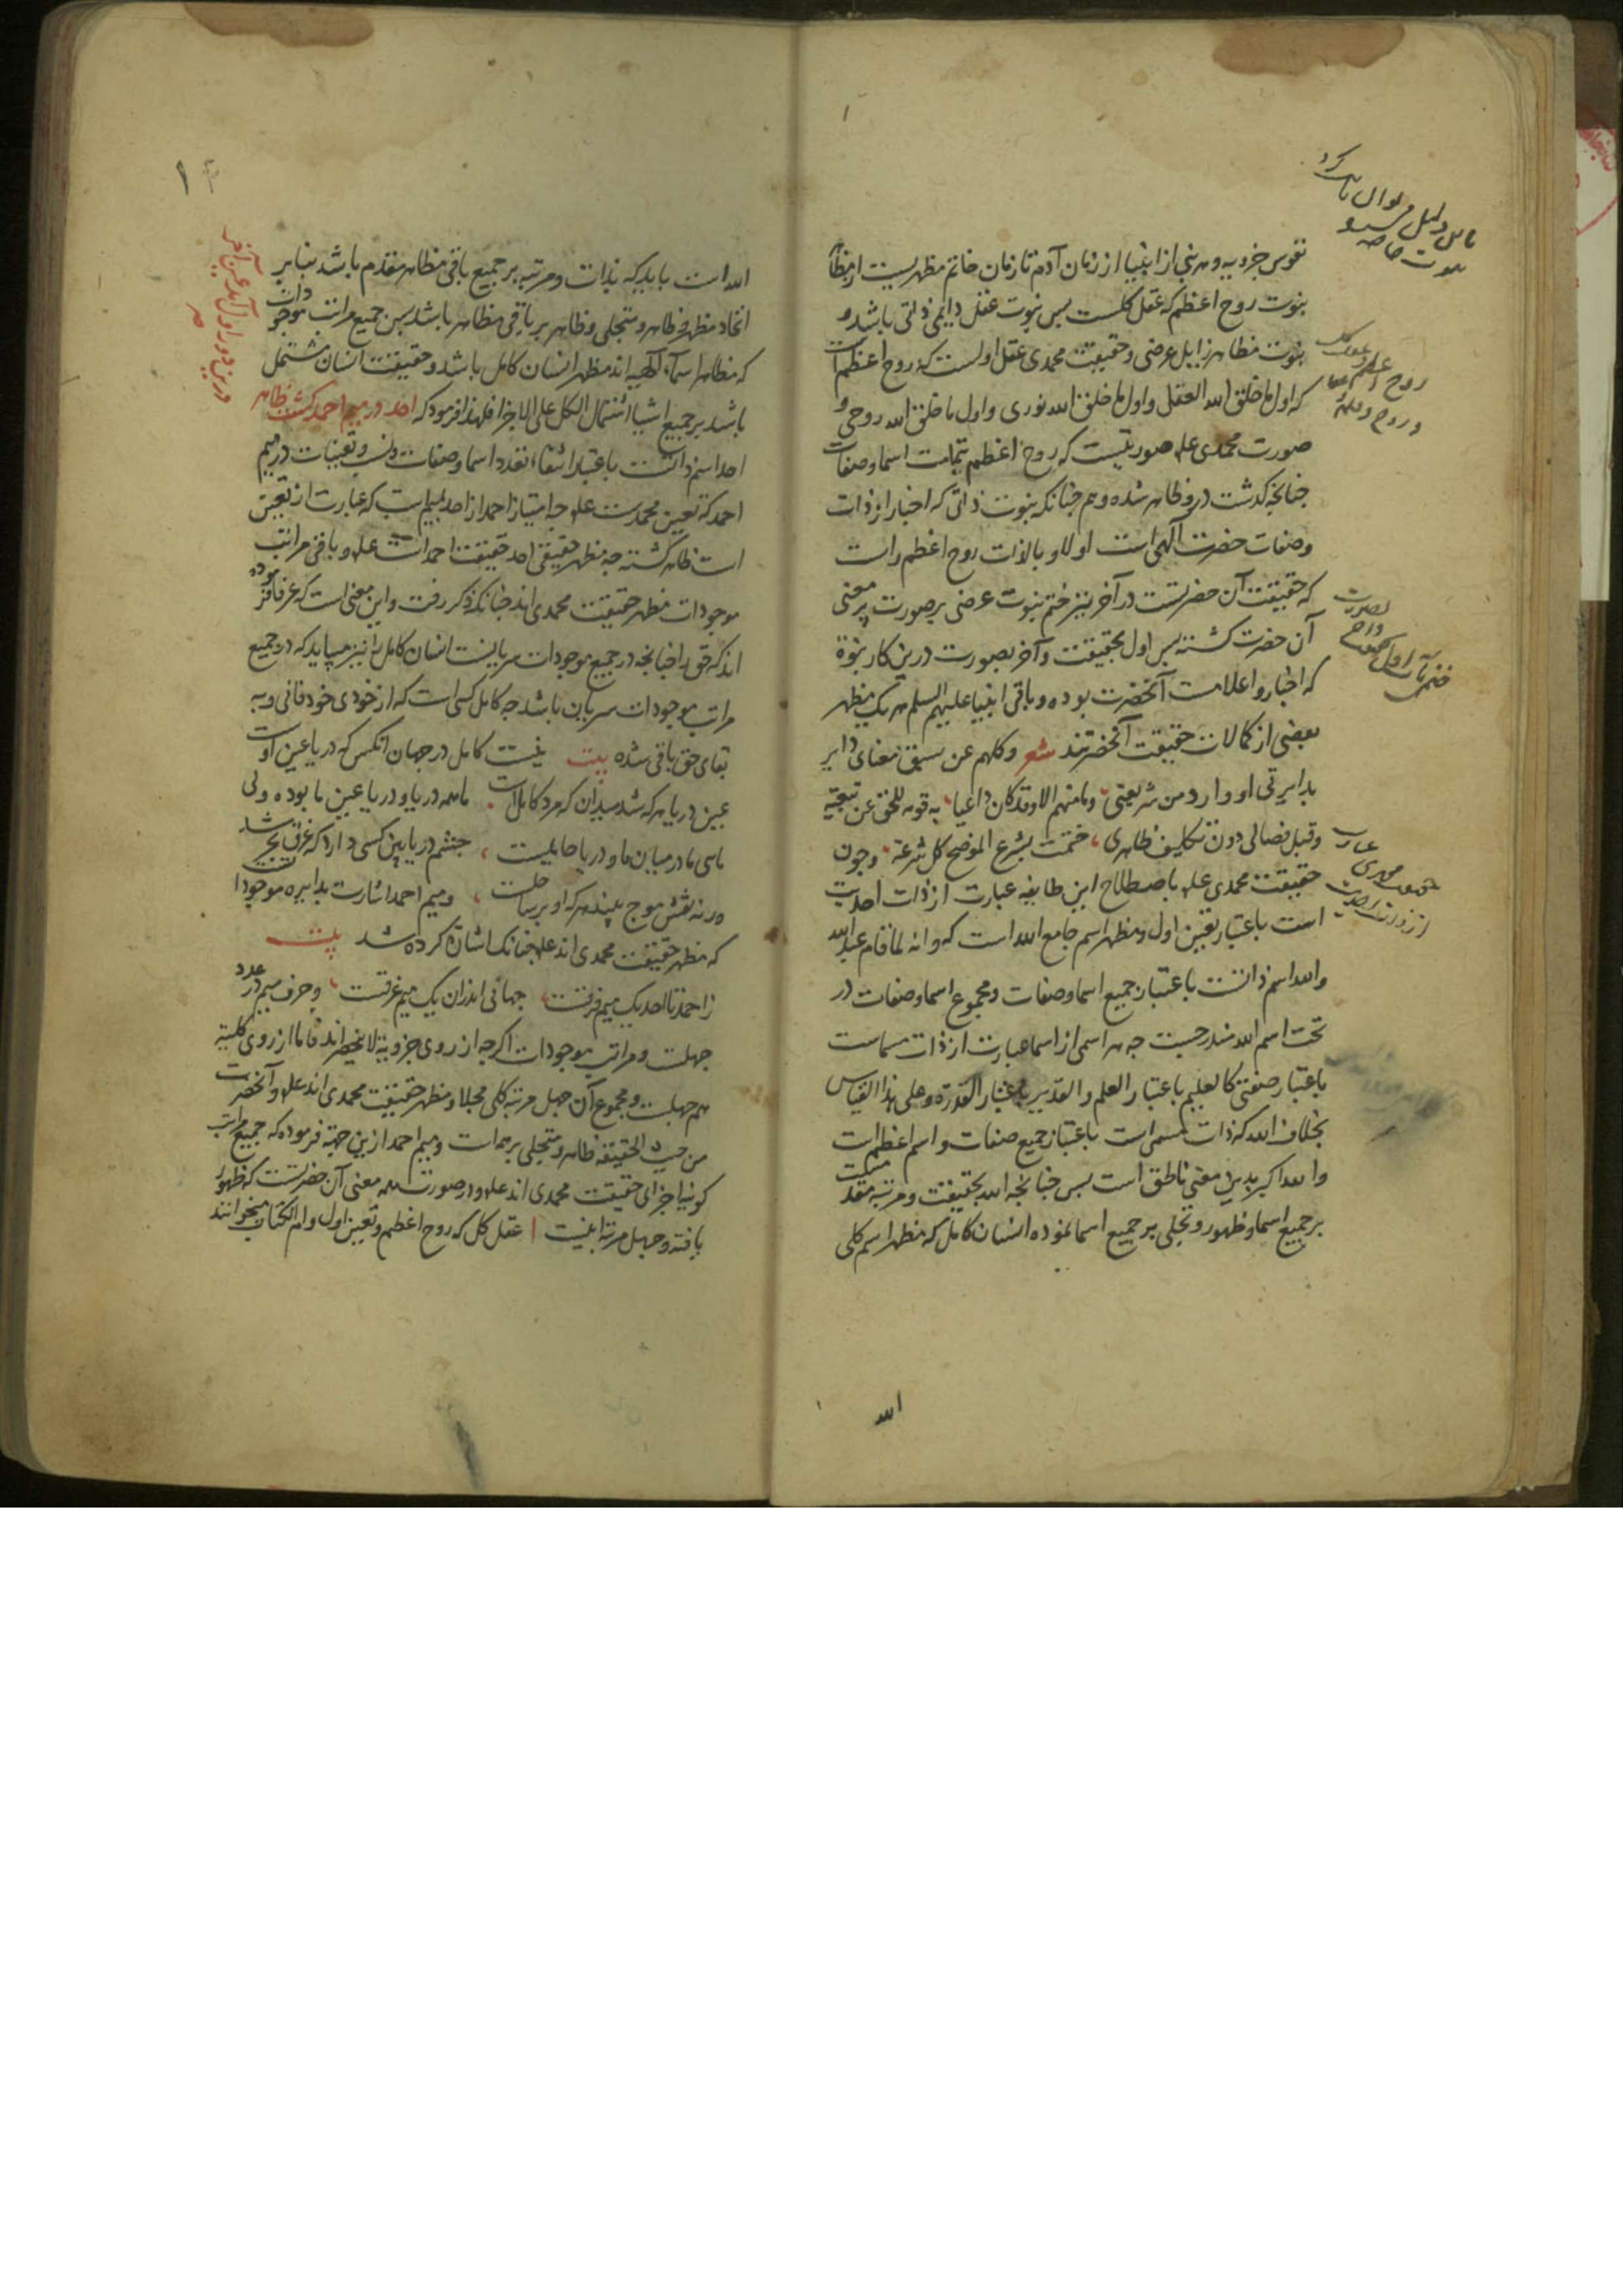 نفوس جزویه و هر نبی از انبیا از زمان آدم تا زمان خاتم مظهریست از مظاهر
نبوت روح اعظم که عقل کلست پس نبوت عقل دایمی ذاتی باشد و
نبوت مظاهر زایل عرضی و حقیقت محمدی عقل اولست که روح اعظم است
که اول ما خلق الله العقل و اول ما خلق الله نوری و اول ما خلق الله روحی و
صورت محمدی علم صورتیست که روح اعظم بتمامت اسما و صفات
جنانجه کذشت درو ظاهر شده و هم جنانکه نبوت ذاتی که اخبار از ذات
و صفات حضرت آلهی است اولا و بالذات روح اعظم راست
که حقیقت آن حضرتست در آخر نیز ختم نبوت عرضی بر صورت پر معنی
آن حضرت کشته پس اول بحقیقت و آخر بصورت درین کار نبوة
که اخبار و اعلامست آنحضرت بوده و باقی انبیا علیهم السلم هر یک مظهر
بعضی از کمالات حقیقت آنحضرتند شعر وکلهم عن سبق معنای دایر
بدایرتی او وارد من شریعتی وما منهم الا وقد کان داعیا به قومه للحق عن تبعیة
وقبل فصالی دون تکلیف ظاهری ختمت بشرع الموضح کل شرعة وجون
حقیقت محمدی علم باصطلاح این طایفه عبارت از ذات احدیت
است باعتبار تعین اول و مظهر اسم جامع الله است که وانه لما قام عبد الله
والله اسم ذاتست باعتبار جمیع اسما و صفات و مجموع اسما و صفات در
تحت اسم الله مندرجست جه هر اسمی از اسما عبارت از ذات مسماست
باعتبار صفتی کالعلیم باعتبار العلم والقدیر باعتبار القدرة وعلی هذا القیاس
بخلاف الله که ذات مسمی است باعتبار جمیع صفات و اسم اعظم است
والله اکبر بدین معنی ناطق است پس جنانجه الله بحقیقت و مرتبه مقدمست
بر جمیع اسما و ظهور و تجلی بر جمیع اسما نموده انسان کامل که مظهر اسم کلی
الله
۱
الله است باید که بذات و مرتبه بر جمیع باقی مظاهر مقدم باشد بنابر
اتحاد مظهر و ظاهر و متجلی و ظاهر بر باقی مظاهر باشد پس جمیع مراتب موجودات
که مظاهر اسماء آلهیه اند مظهر انسان کامل باشد و حقیقت انسان مشتمل
باشد بر جمیع اشیا اشتمال الکل علی الاجزا فلهذا فرمود که احد در میم احمد کشت ظاهر
احد اسم ذاتست باعتبار انتفاء تعدد اسما و صفات و نسب و تعینات در میم
احمد که تعین محمدست علم جه امتیاز احمد از احد بمیم است که عبارت از تعین
است ظاهر کشته جه مظهر حقیقی احد حقیقت احمد است علم و باقی مراتب
موجودات مظهر حقیقت محمدی اند جنانکه ذکر رفت و این معنی است که عرفا فرموده
اند که حق را جنانجه در جمیع موجودات سریانست انسان کامل را نیز میباید که در جمیع
مراتب موجودات سریان باشد جه کامل کسی است که از خودی خود فانی و به
بقای حق باقی شده بیت نیست کامل در جهان انکس که دریا عین اوست
عین دریا هر که شد میدان که مرد کامل است ما همه دریا و دریا عین ما بوده ولی
مائی ما در میان ما و دریا حایلیست جشم دریا بین کسی دارد که غرق بحر شد
ورنه نقش موج بیند هر که او بر ساحلست و میم احمد اشارت بدایره موجودات
که مظهر حقیقت محمدی اند علم جنانک اشاره کرده شد بیت
ز احمد تا احد یک میم فرقست جهانی اندران یک میم غرقست و حرف میم در عدد
جهلست و مراتب موجودات اکرجه از روی جزویة لا ینحصر اند فاما از روی کلیة
هم جهلست و مجموع آن جهل مرتبه کلی مجلا و مظهر حقیقت محمدی اند علم و آنحضرت
من حیث الحقیقه ظاهر و متجلی بر همه است و میم احمد ازین جهة فرموده که جمیع مراتب
کونیه اجزای حقیقت محمدی اند علم و در صورت همه معنی آن حضرتست که ظهور
یافته و جهل مرتبه اینست ۱ عقل کل که روح اعظم و تعین اول و ام الکتاب میخوانند
درین دور اول آمد عین آخر